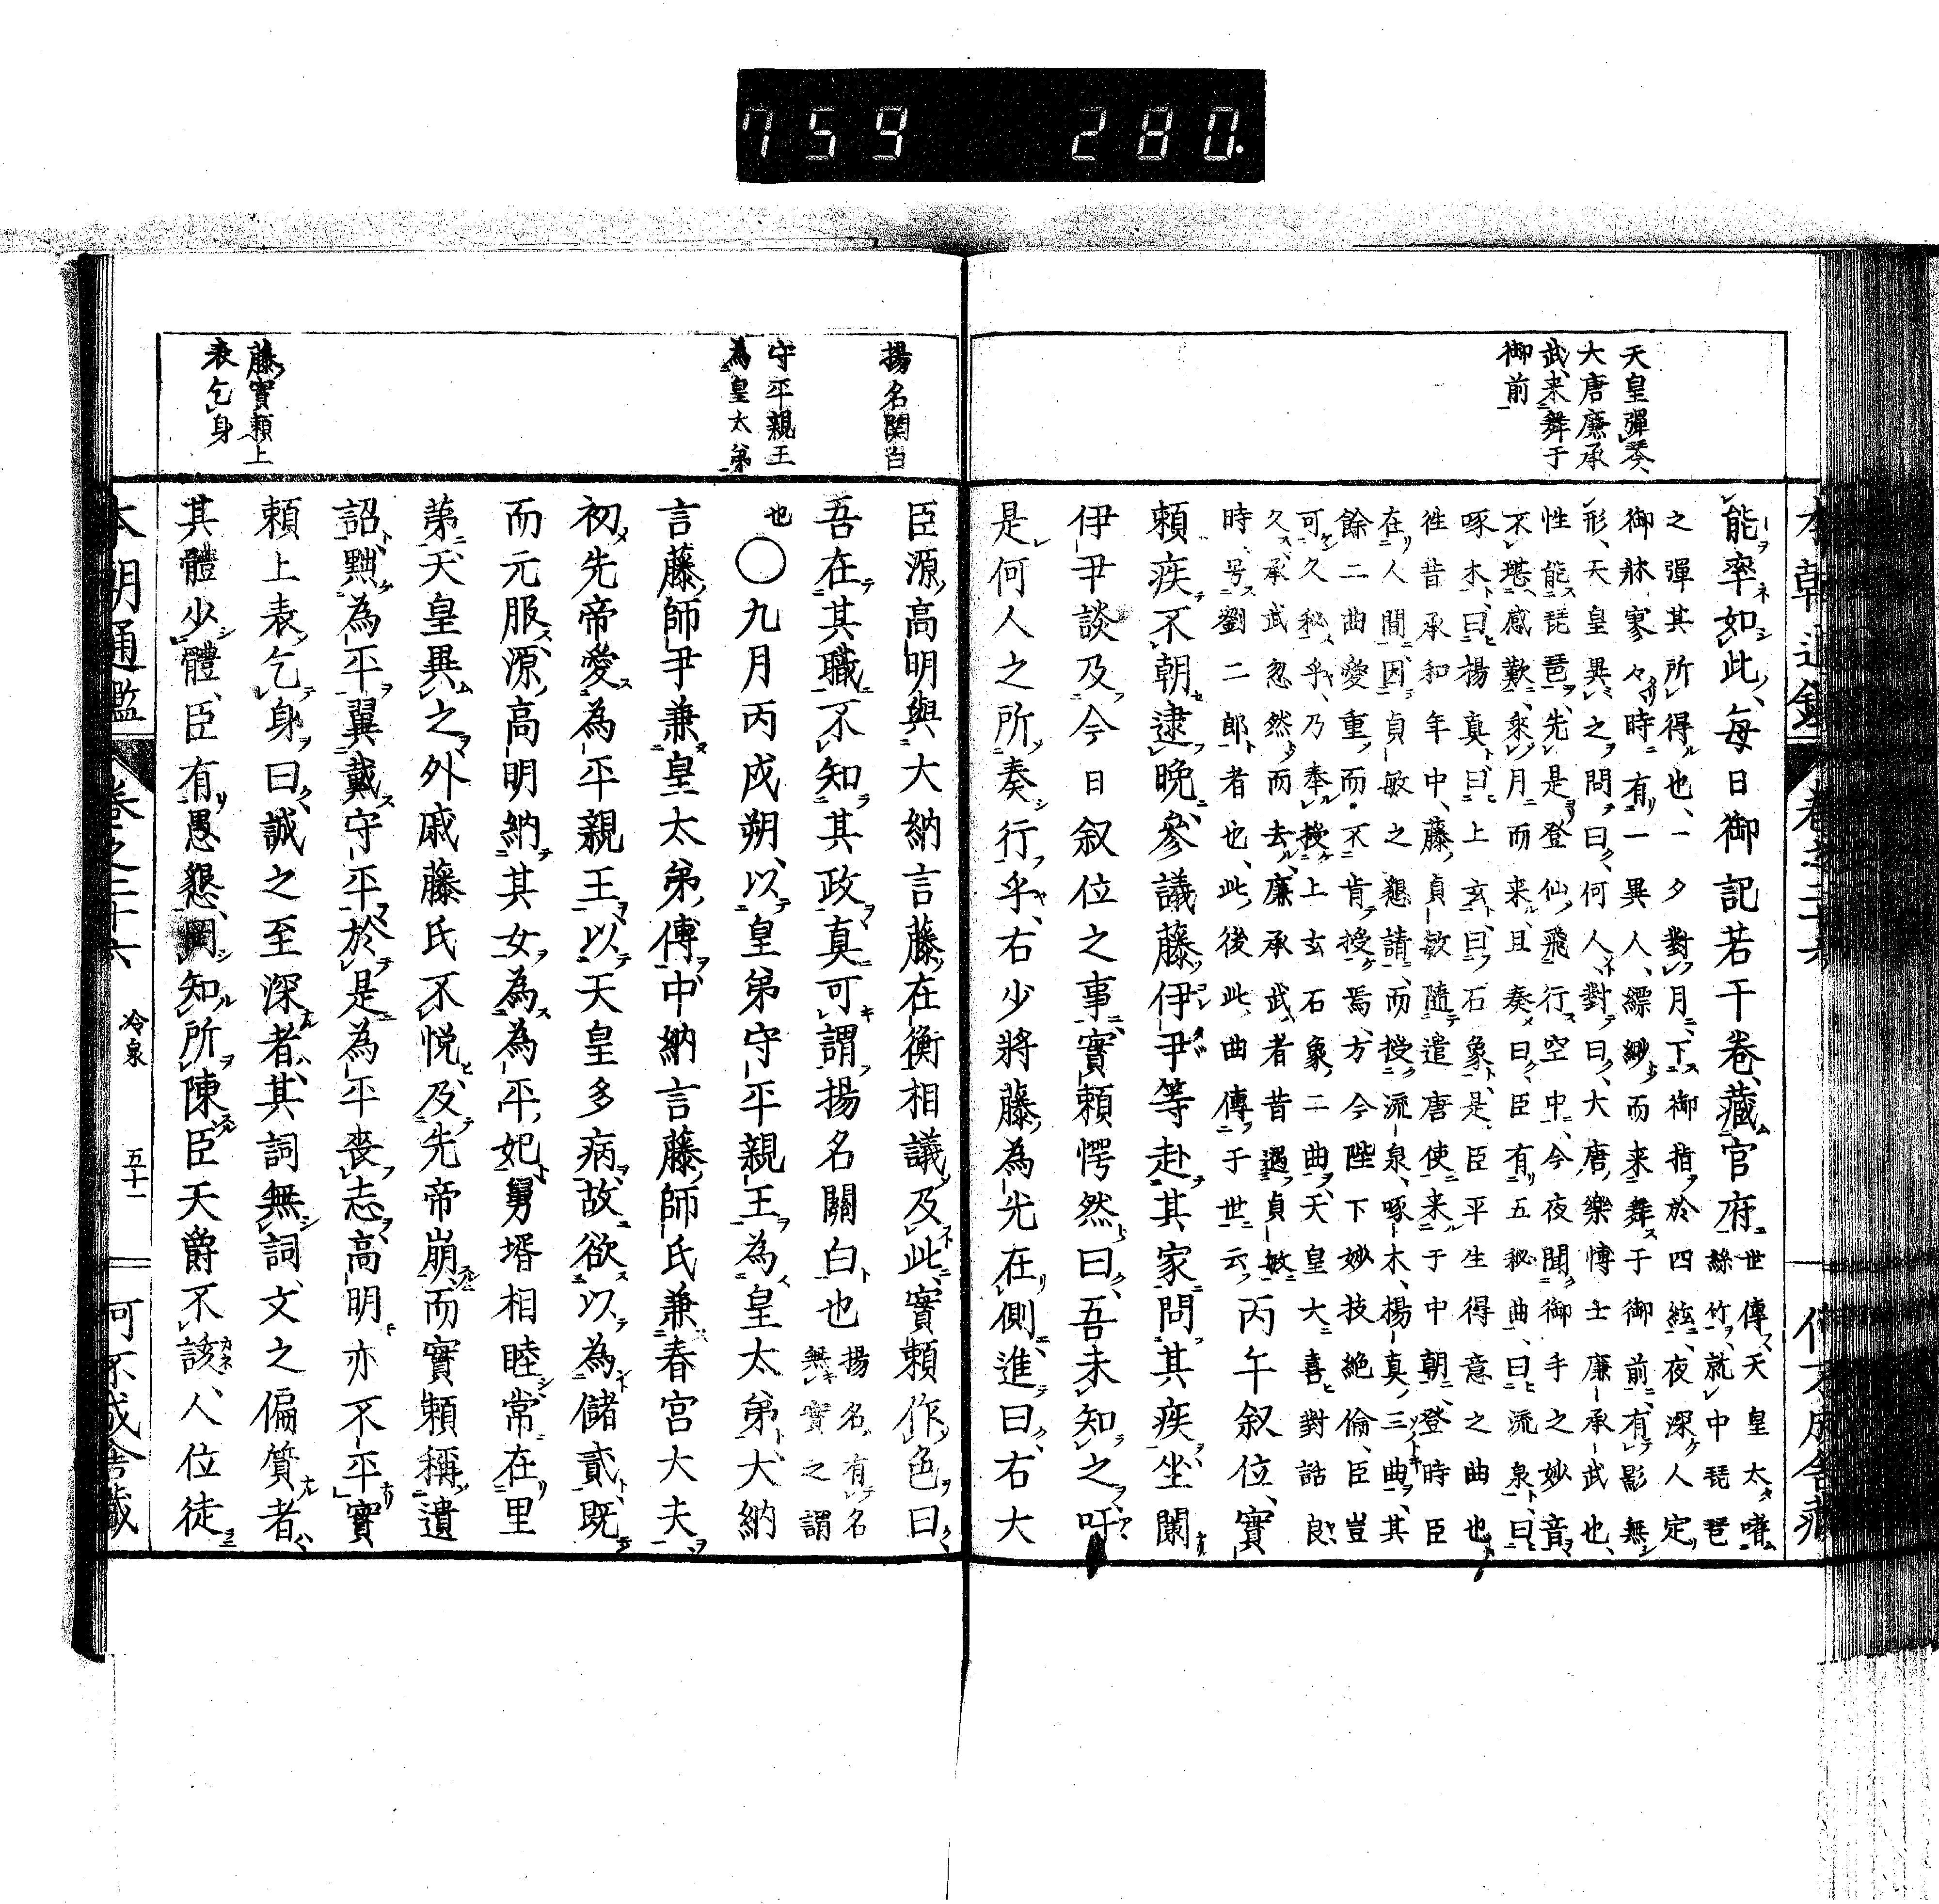 759 280.
天皇彈琴、
大唐廉承
武、来舞于
御前
能率如此、每日御記若干卷、藏官府
世傳天皇太嗜
絲竹、就中琵琶
之彈其所得也、一夕對月、下御指於四絃、夜深人定、
御牀寥々時有一異人、縹緲而来舞于御前、有影無
形、天皇異之問曰、何人、對曰、大唐樂博士廉承武也、
性能琵琶、先是登仙飛行空中、今夜聞御手之妙音
不堪感歎、乘月而来、且奏曰、臣有五秘曲、曰流泉、曰
啄木、曰揚真、曰上玄、曰石象、是臣平生得意之曲也
徃昔承和年中、藤貞敏隨遣唐使来于中朝、登時臣
在人間、因貞敏之懇請、而授流泉、啄木、楊真、三曲、其
餘二曲愛重而不肯授焉、方今陛下妙技絶倫、臣豈
可久秘乎、乃奉授上玄石象二曲、天皇大喜對話良
久、承武忽然而去、廉承武者昔遇貞敏
時、号劉二郎者也、此後此曲傳于世云
丙午叙位、實
頼疾不朝逮晩、參議藤伊尹等赴其家問其疾、坐闌
伊尹談及今日叙位之事、實頼愕然曰、吾未知之吁
是何人之所奏行乎、右少將藤為光在側進曰、右大
揚名関白
守平親王
為皇太弟
藤實頼上
表乞身
臣源高明與大納言藤在衡相議、及此、實頼作色曰
吾在其職不知其政真可謂揚名關白也
揚名有名
無實之謂
也
〇九月丙戌朔、以皇弟守平親王為皇太弟、大納
言藤師尹兼皇太弟傅、中納言藤師氏兼春宮大夫、
初先帝愛為平親王、以天皇多病、故欲以為儲貳、既
而元服、源高明納其女為為平妃、舅壻相睦、常在里
第、天皇異之、外戚藤氏不悦、及先帝崩、而實頼稱遺
詔、黜為平翼戴守平、於是為平喪志、高明亦不平、實
頼上表乞身曰、誠之至深者、其詞無詞、文之偏質者
其體少體、臣有愚懇、罔知所陳、臣天爵不該、人位徒
本朝通鑑
卷之二十六
冷泉
五十一